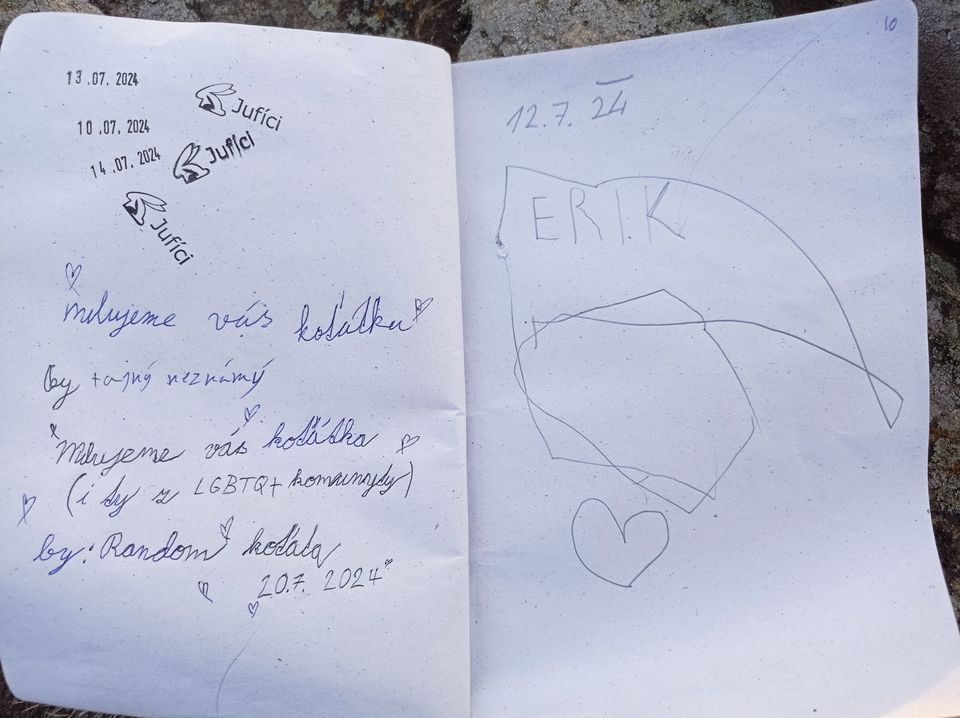 13.07.2024
Jufíci
10.07.2024
Jufíci
14.07.2024
Jufíci
Milujeme vás koťátka
by tajný neznámý
Milujeme vás koťátka
(i ty z LGBTQ+ komunyty)
by: Random koťata
20.7. 2024
10
12.7. 24
ERIK